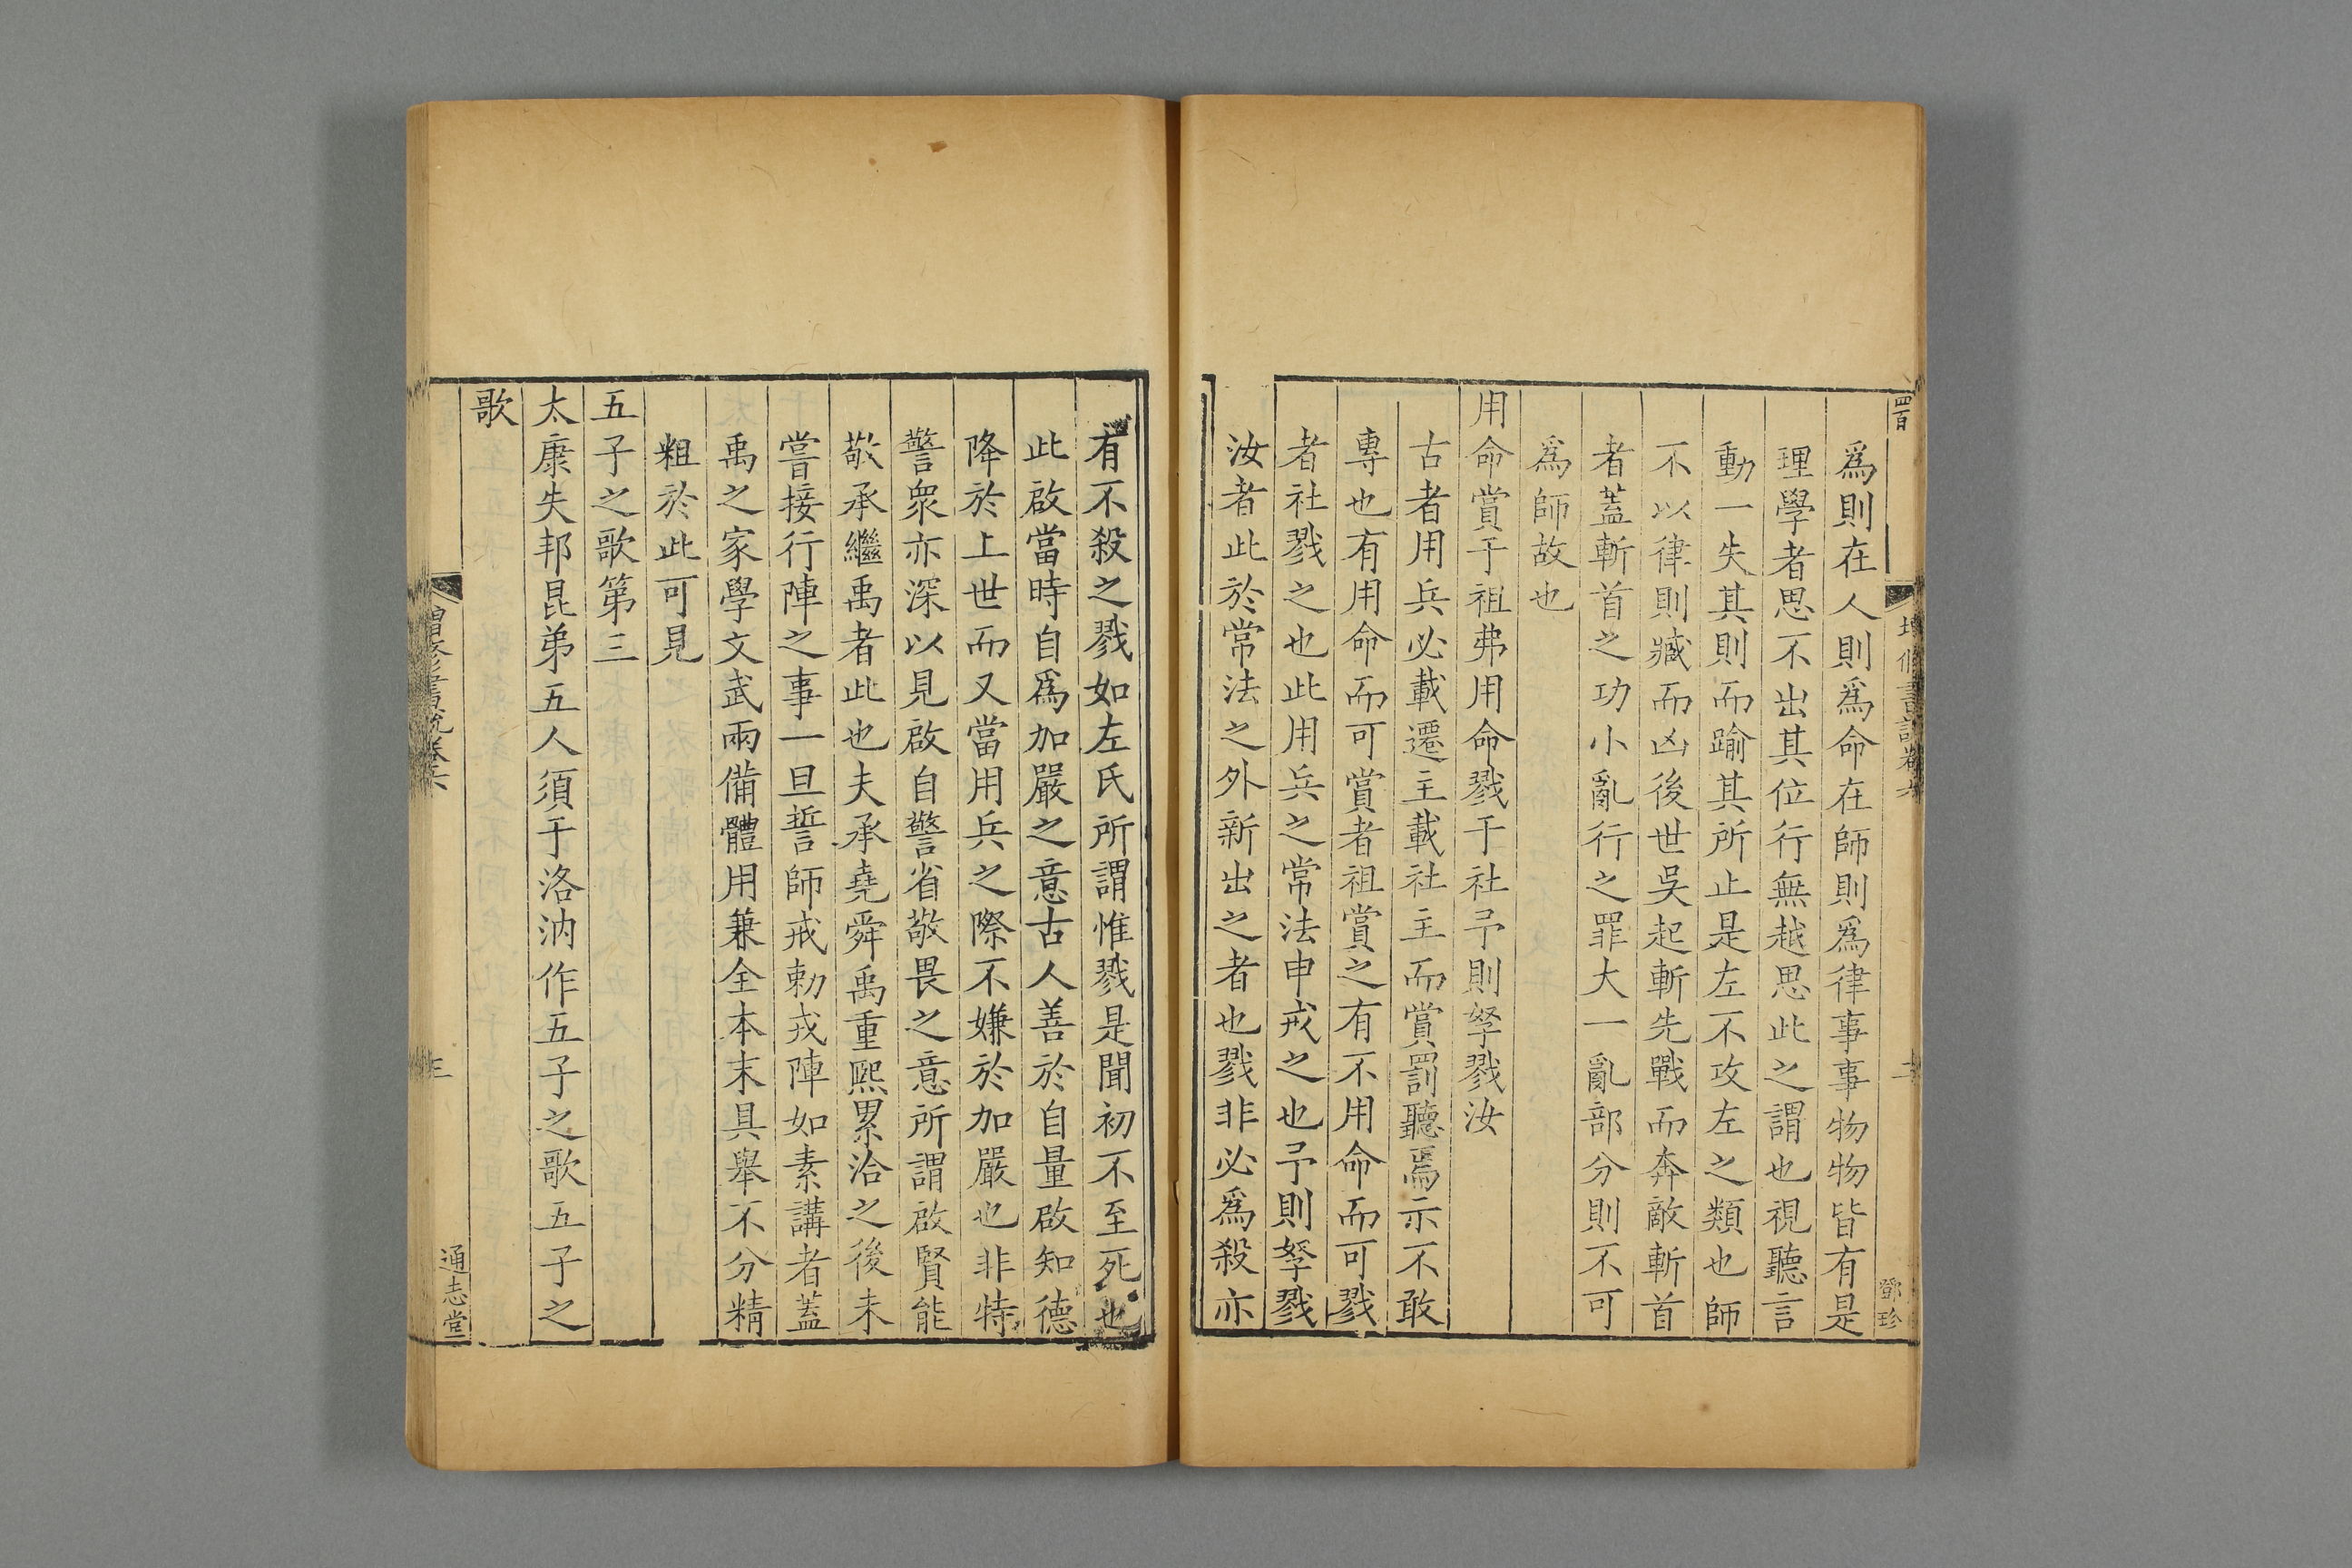 四百
鄧珍
爲則在人則爲命在師則爲律事事物物皆有是
理學者思不出其位行無越思此之謂也視聽言
動一失其則而踰其所止是左不攻左之類也師
不以律則臧而凶後世吳起斬先戰而奔敵斬首
者蓋斬首之功小亂行之罪大一亂部分則不可
爲師故也
用命賞于祖弗用命戮于社予則孥戮汝
古者用兵必載遷主載社主而賞罰聽焉示不敢
專也有用命而可賞者祖賞之有不用命而可戮
者社戮之也此用兵之常法申戒之也予則孥戮
汝者此於常法之外新出之者也戮非必爲殺亦
有不殺之戮如左氏所謂惟戮是聞初不至死也
此啟當時自爲加嚴之意古人善於自量啟知德
降於上世而又當用兵之際不嫌於加嚴也非特
警衆亦深以見啟自警省敬畏之意所謂啟賢能
敬承繼禹者此也夫承堯舜禹重熙累洽之後未
嘗接行陣之事一旦誓師戒勅戎陣如素講者蓋
禹之家學文武兩備體用兼全本末具舉不分精
粗於此可見
五子之歌第三
太康失邦昆弟五人須于洛汭作五子之歌五子之
歌
增修書說卷六
三
通志堂